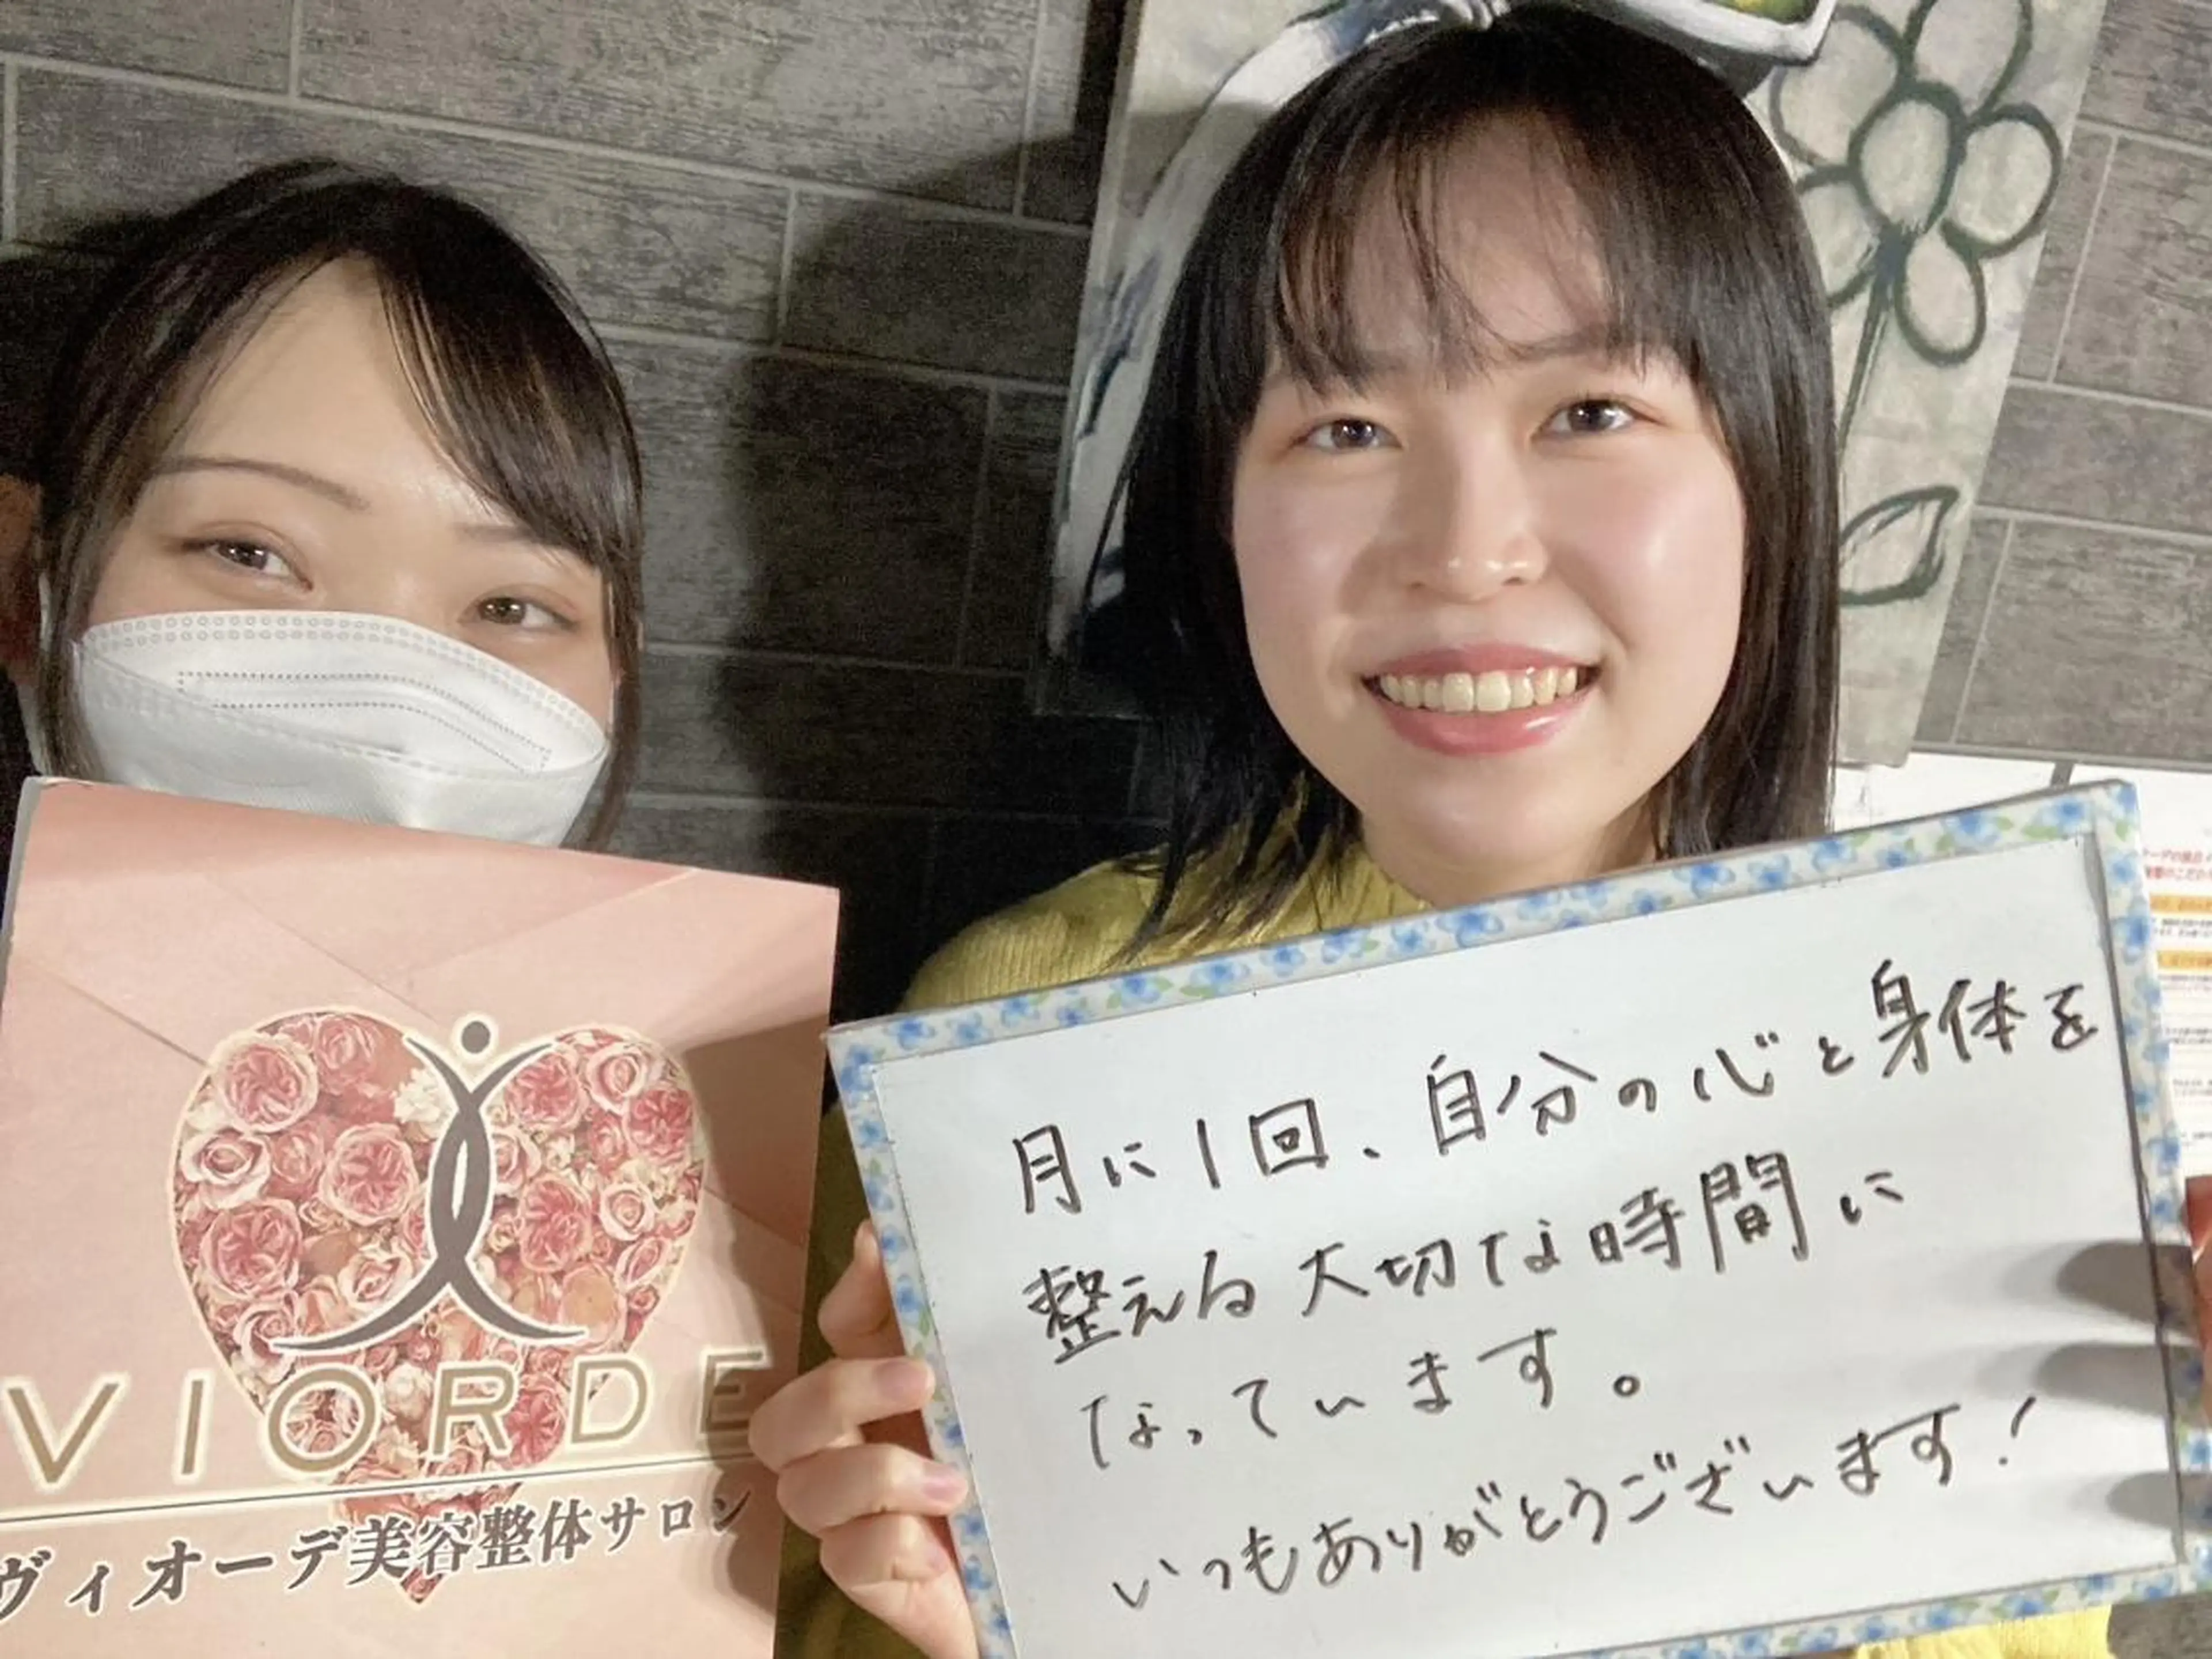 VIORDE
ヴィオーデ美容整体サロン
月に1回、自分の心と身体を
整える大切な時間に
なっています。
いつもありがとうございます!